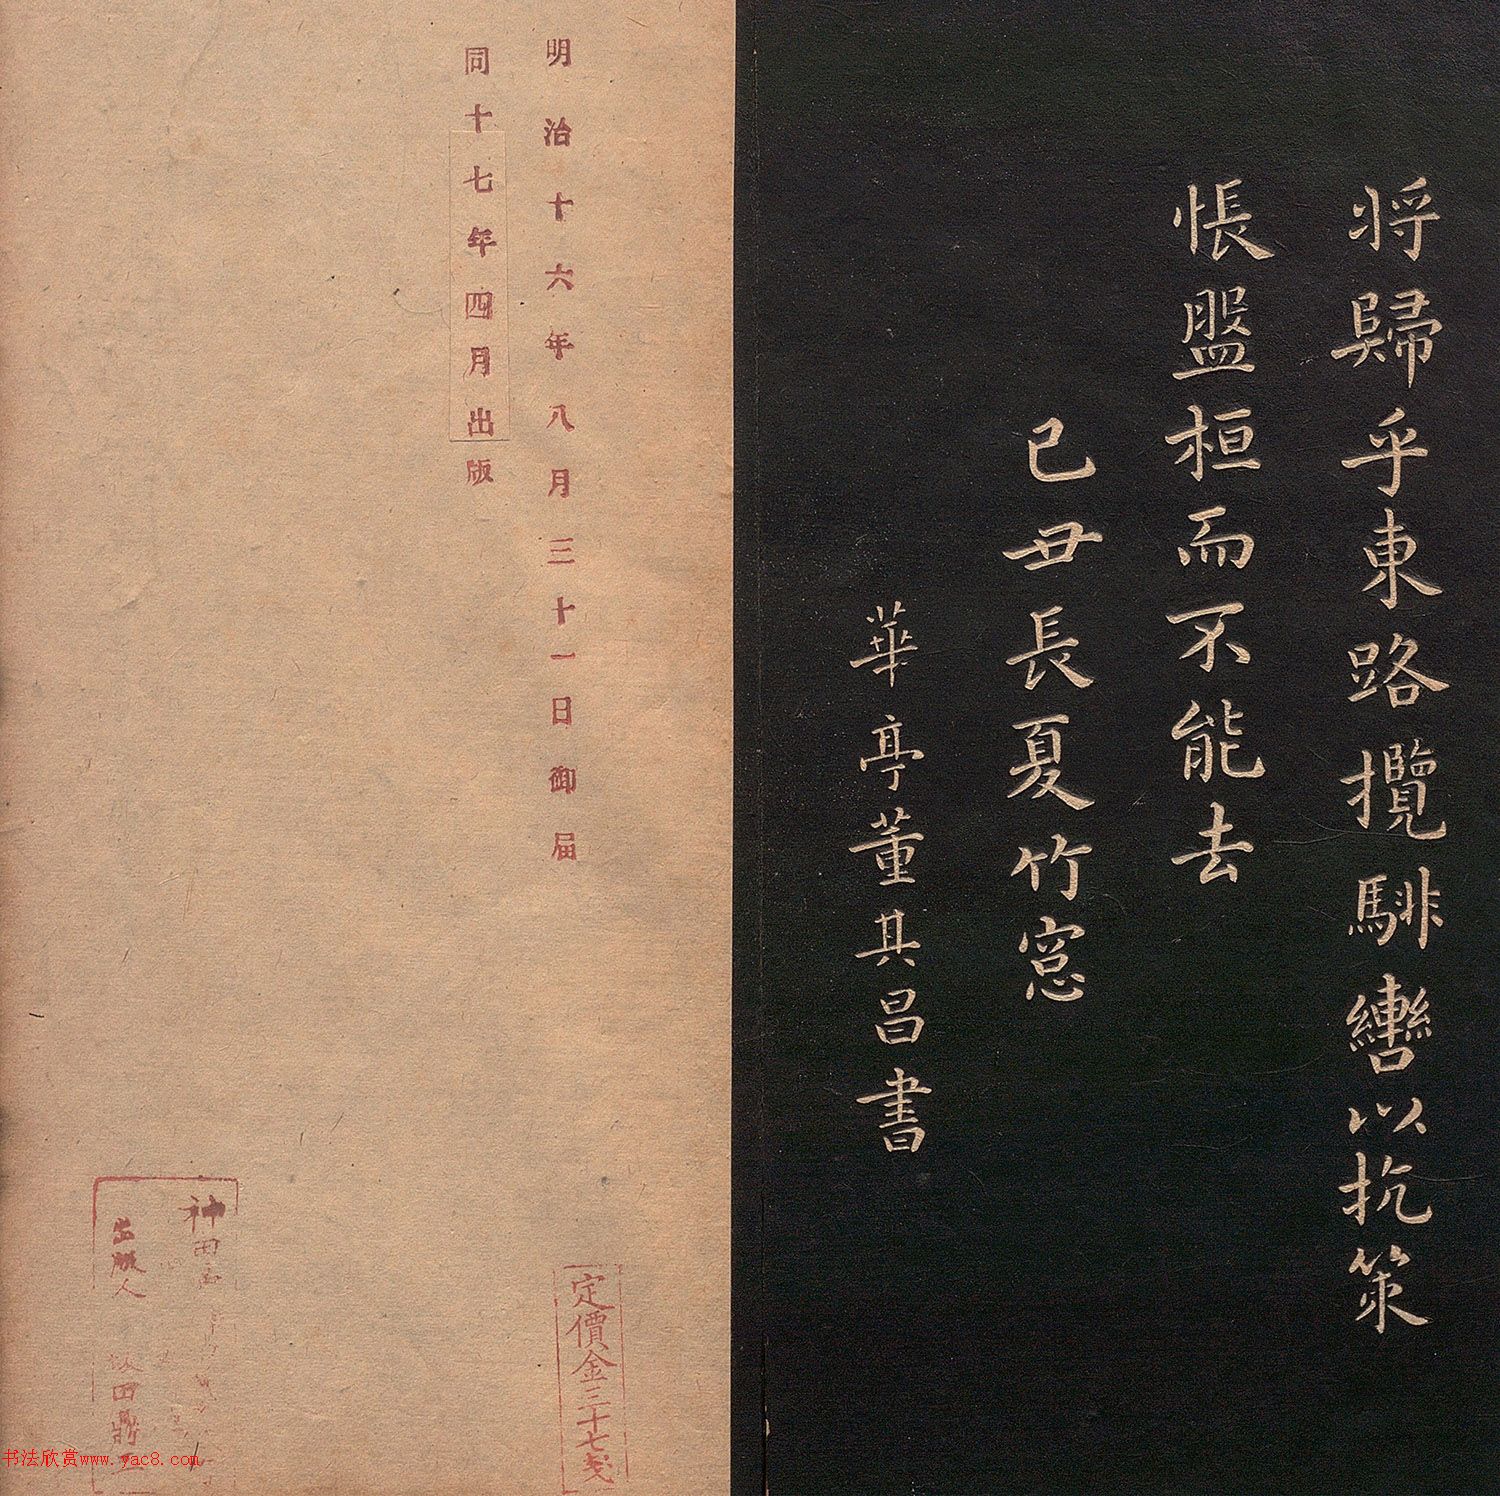 将歸乎東路攬騑轡以抗策
悵盤桓而不能去
己丑長夏竹窓
華亭董其昌書
明治十六年八月三十一日御届
同十七年四月出版
定價金三十七戔
神田
出版人 田鼎
书法欣赏www.yac8.com